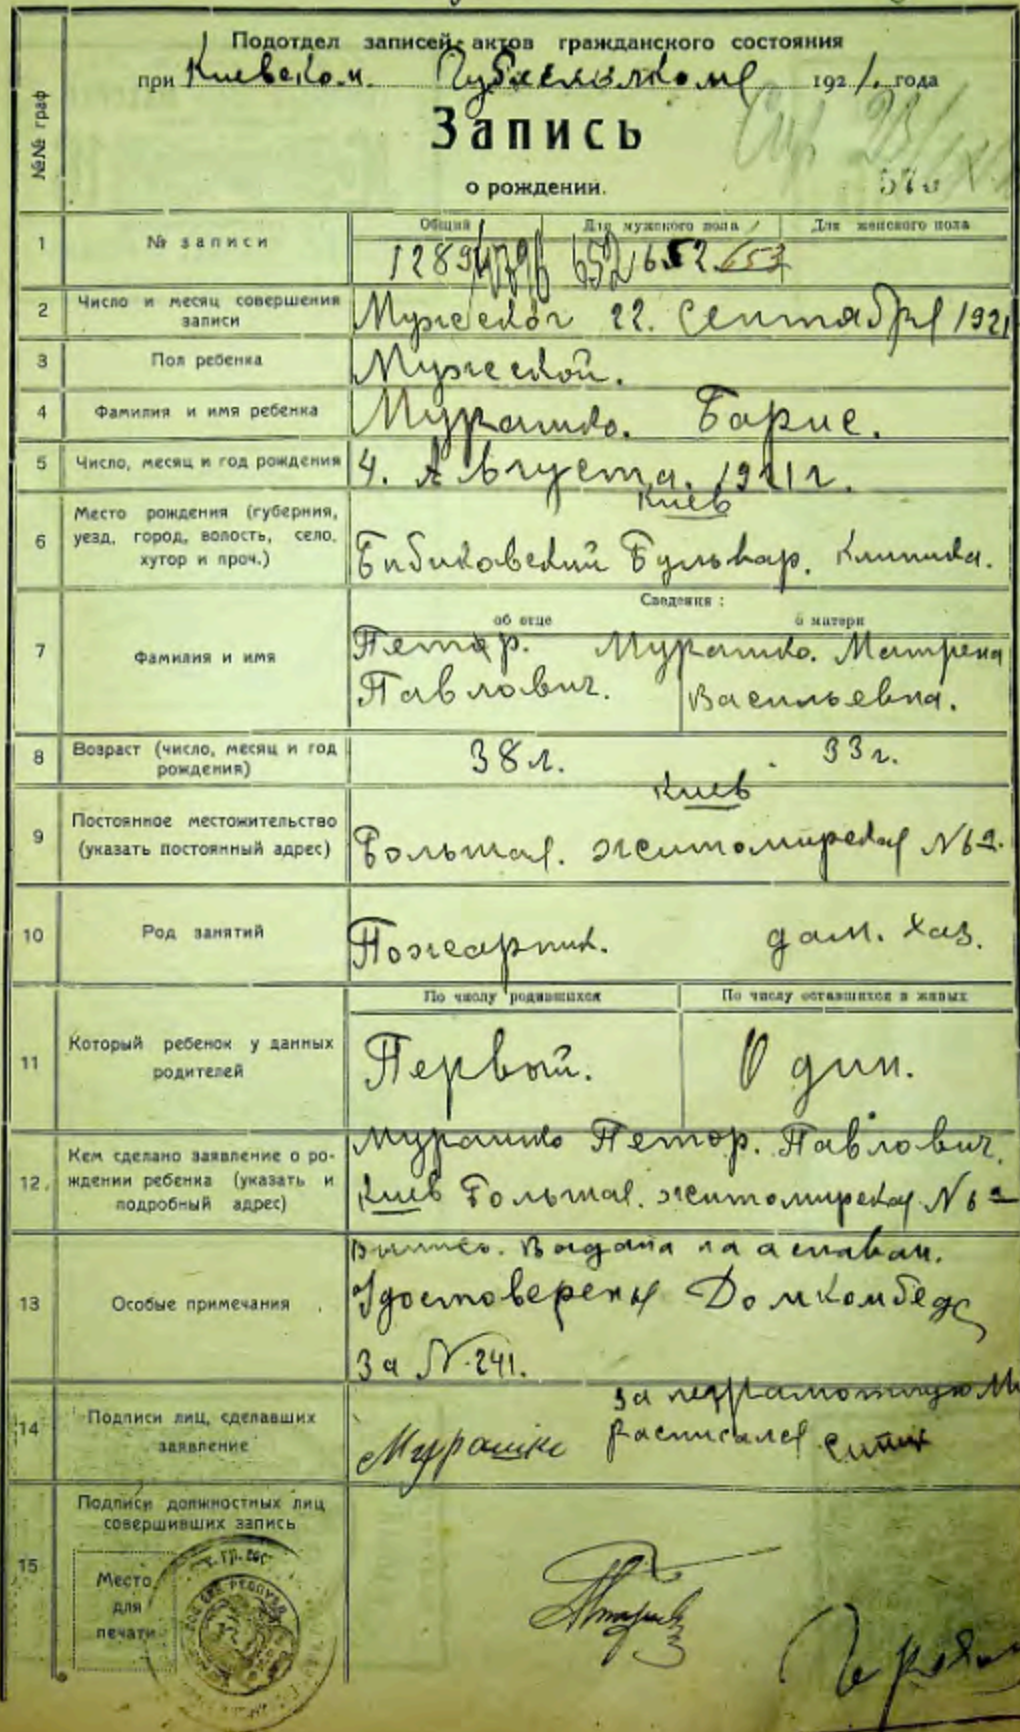 Подотдел записей актов гражданского состояния
при Киевском. Губисполкоме 1921. года
Запись
о рождении.
№№ граф
1 № записи Общий Для мужского пола Для женского пола
1289 652 652 653
2 Число и месяц совершения записи Мужской 22. Сентября 1921
3 Пол ребенка Мужской.
4 Фамилия и имя ребенка Мурашко. Барис.
5 Число, месяц и год рождения 4. Августа. 1921 г.
6 Место рождения (губерния, уезд, город, волость, село, хутор и проч.)
Киев
Бибиковский Бульвар. Клиника.
Сведения:
об отце о матери
7 Фамилия и имя
Петор. Мурашко. Матрена
Павлович. Васильевна.
8 Возраст (число, месяц и год рождения) 38 л. 33 г.
9 Постоянное местожительство (указать постоянный адрес)
Киев
Большая. житомирская №
10 Род занятий Пожарник. дам. хаз.
По числу родившихся По числу оставшихся в живых
11 Который ребенок у данных родителей Первый. Один.
12 Кем сделано заявление о рождении ребенка (указать и подробный адрес)
Мурашко Петор. Павлович.
Киев Большая. житомирская №
13 Особые примечания
Удостоверения Домкомбеда
За №. 241.
14 Подписи лиц, сделавших заявление
За неграмотную
Мурашко расписался
15 Подписи должностных лиц совершивших запись
Место
для
печати